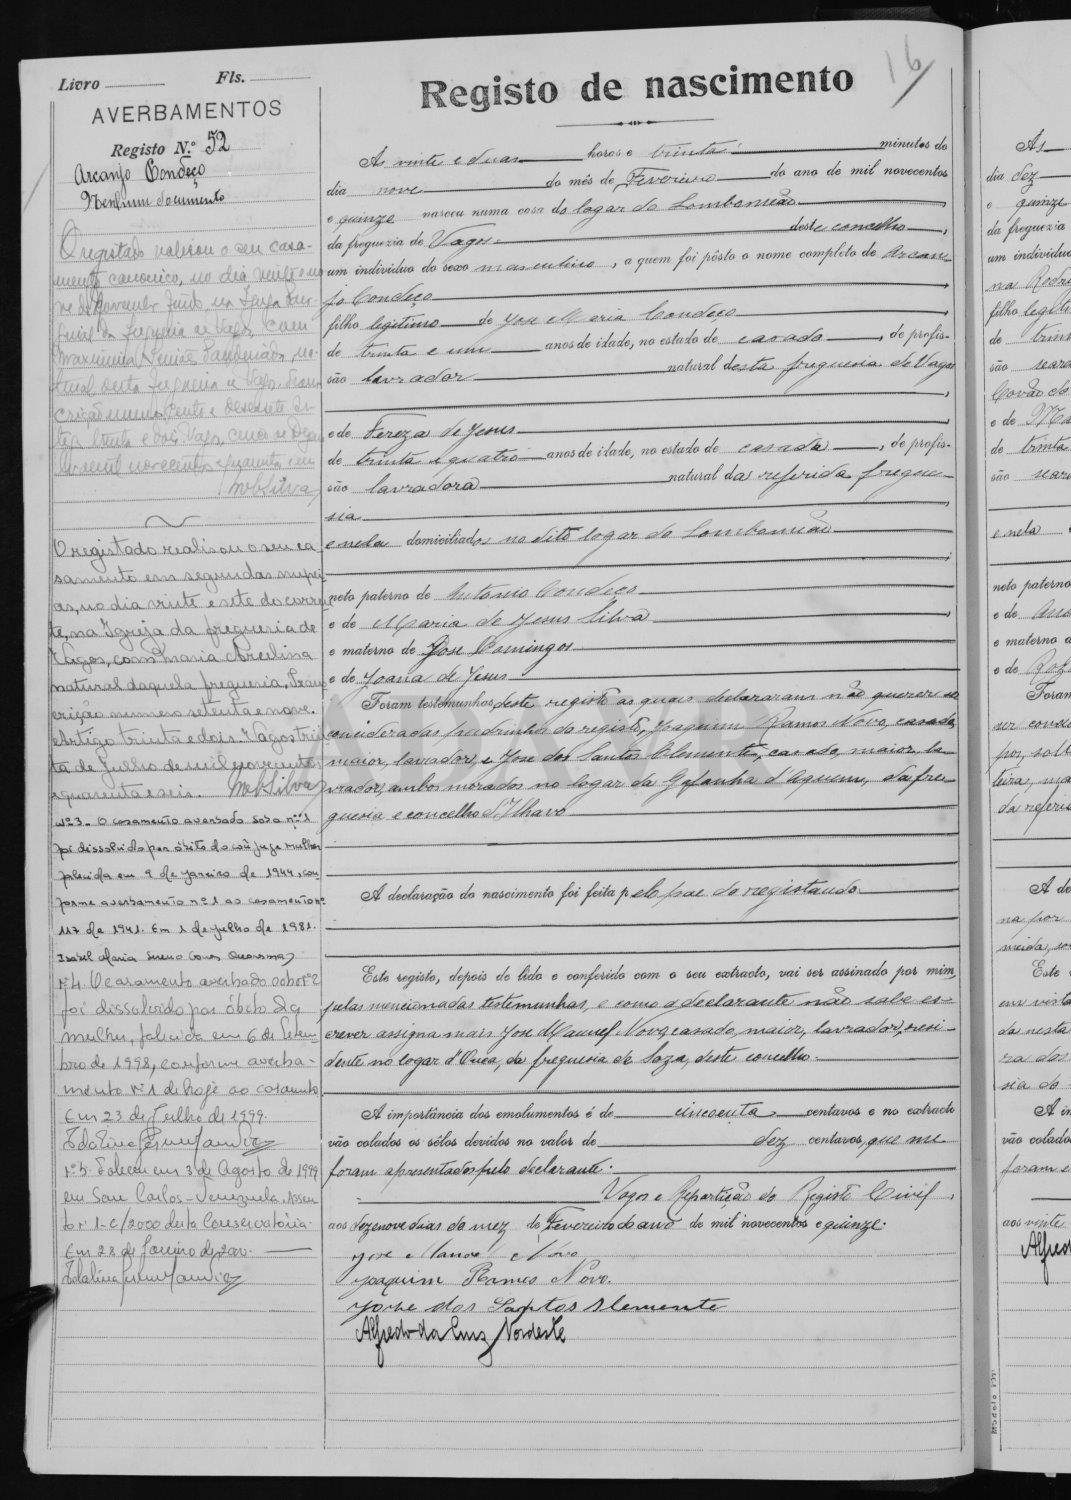 Livro Fls.
AVERBAMENTOS
Registo N.º 52
Arcanjo Condeço
Nenhum documento
O registado realisou o seu casa-
mento canonico, no dia vinte e no
ve de Novembro findo, na Igreja
da freguesia de Vagos, com
natural desta freguesia de Vagos.
crição numero cento e desessete Ar-
tigo trinta e dois. Vagos, cinco de Deze
bro de mil novecentos e quarenta e um
MCSilva
O registado realisou o seu ca
samento em segundas nupci
as, no dia vinte e sete do corren
te, na Igreja da freguesia de
Vagos, com Maria Arcelina
natural daquela freguesia, Trans
crição numero setenta e nove.
Artigo trinta e dois. Vagos, trin
ta de Julho de mil novecentos
e quarenta e seis. MCSilva
Nº 3 - O casamento averbado sob o nº 1
foi dissolvido por óbito do conjuge mulher
falecida em 9 de janeiro de 1944, con
forme averbamento nº 1 ao casamento nº
117 de 1941. Em 1 de julho de 1981.
Isabel Maria
Nº 4. O casamento averbado sob o nº 2
foi dissolvido por óbito da
mulher, falecida em 6 de Setem
bro de 1998, conforme averba-
mento nº 1 de hoje ao casamento
Em 23 de Julho de 1999.
Nº 5. Faleceu em 3 de Agosto de 1999
em San Carlos - Venezuela. Assen
to nº 1-C/2000 desta Conservatória.
Em 28 de Janeiro de 2000.
16
Registo de nascimento
Ás vinte e duas horas e trinta minutos do
dia nove do mês de Fevereiro do ano de mil novecentos
e quinze nasceu numa casa do logar do Lombomeão
da freguezia de Vagos deste concelho,
um individuo do sexo masculino, a quem foi pôsto o nome completo de Arcan-
jo Condeço
filho legitimo de José Maria Condeço
de trinta e um anos de idade, no estado de casado, de profis-
são lavrador natural desta freguesia de Vagos
e de Tereza de Jesus
de trinta e quatro anos de idade, no estado de casada, de profis-
são lavradora natural da referida fregue-
sia
e nela domiciliados no dito logar do Lombomeão
neto paterno de Antonio Condeço
e de Maria de Jesus Silva
e materno de José Domingos
e de Joana de Jesus
Foram testemunhas deste registo as quais declararam não querer ser
consideradas padrinhos do registo, Joaquim Ramos Novo, casado,
maior, lavrador, e José dos Santos Clemente, casado, maior, la-
vrador, ambos morados no logar da Gafanha d'Aquem, da fre-
guesia e concelho d'Ilhavo
A declaração do nascimento foi feita pelo pae do registando
Este registo, depois de lido e conferido com o seu extracto, vai ser assinado por mim,
pelas mencionadas testemunhas, e como o declarante não sabe es-
crever assigna mais José Manuel Novo, casado, maior, lavrador, resi-
dente no logar d'Ouca, da freguesia de Soza, deste concelho.
A importância dos emolumentos é de cincoenta centavos e no extracto
vão colados os sêlos devidos no valor de dez centavos, que me
foram apresentados pelo declarante.
Vagos e Repartição do Registo Civil,
aos dezenove dias do mez de Fevereiro do ano de mil novecentos e quinze.
José Manoel Novo
Joaquim Ramos Novo.
José dos Santos Clemente
Alfredo da Cruz Nordeste
Ás
dia dez
e quinze
da freguezia
um individuo
filho legiti
de trin
são
e de
de trinta
são
e nela
neto paterno
e de
e materno d
e de
Foram
da referid
A de
na por
Este
da nesta
A im
vão colado
foram
aos vinte
Alfred
Modelo